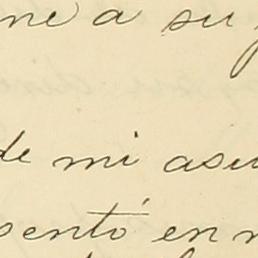 ne a su
de mi asu
sentó en